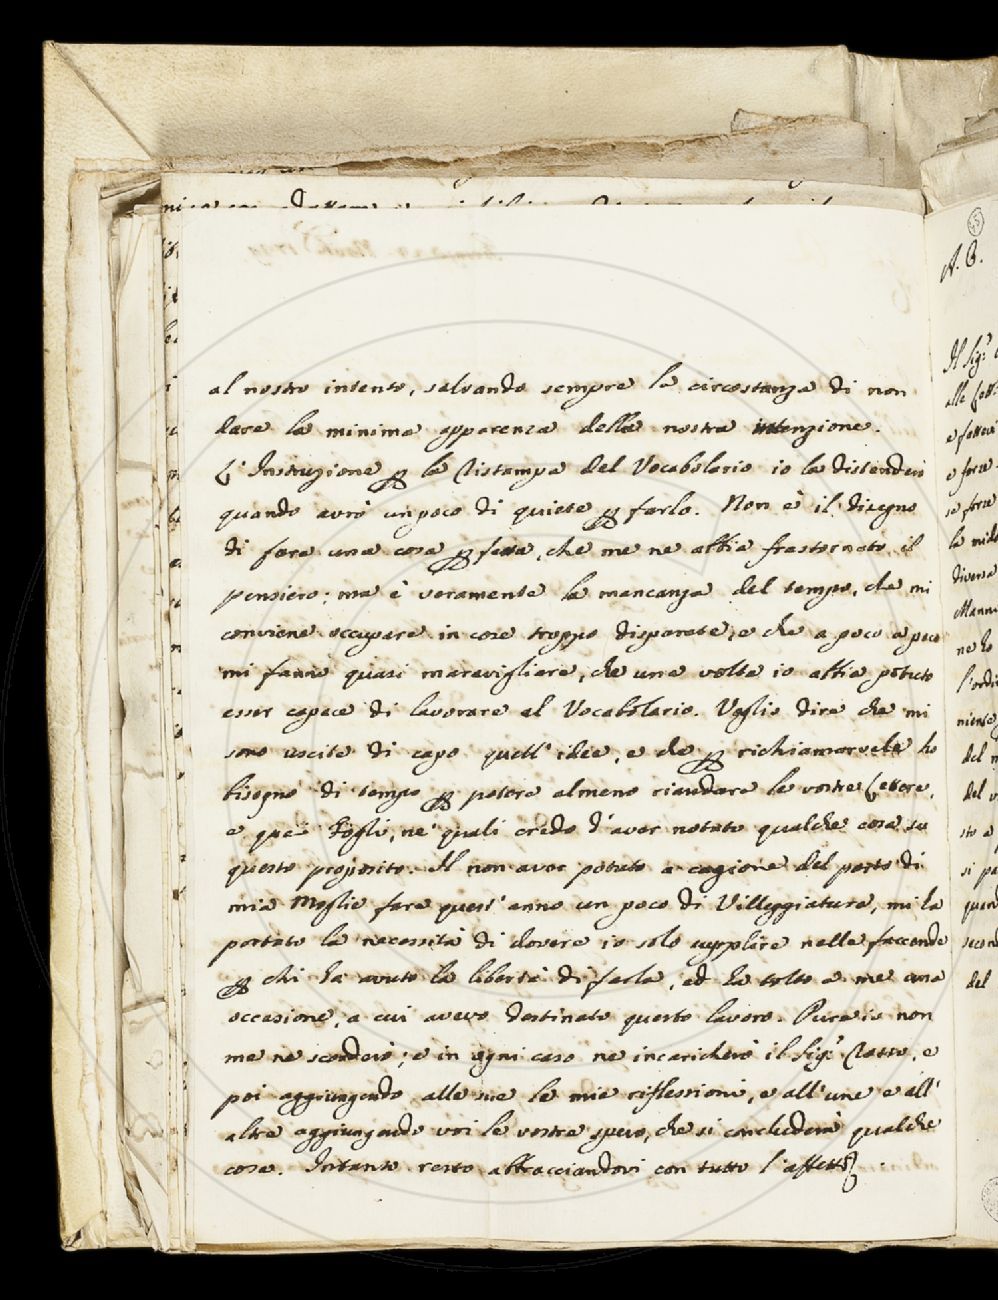 al nostro intento, salvando sempre la circostanza di non
dare la minima apparenza della nostra intenzione.
L'Instruzione per la Ristampa del Vocabolario io la distenderò
quando avrò un poco di quiete per farlo. Non è il disegno
di fare una cosa perfetta, che me ne abbia frastornato il
pensiero; ma è veramente la mancanza del tempo, che mi
conviene occupare in cose troppo disparate, e che a poco a poco
mi fanno quasi maravigliare, che una volta io abbia potuto
esser capace di lavorare al Vocabolario. Voglio dire che mi
sono uscite di capo quell'idee, e che per richiamarvele ho
bisogno di tempo per potere almeno riandare le vostre Lettere,
e quei Fogli, ne' quali credo d'aver notato qualche cosa su
questo proposito. Il non aver potuto a cagione del parto di
mia Moglie fare quest'anno un poco di Villeggiatura, mi ha
portato la necessità di dovere io solo supplire nelle faccende
per chi ha avuto la libertà di farla, ed ha tolto a me una
occasione, a cui avevo destinato questo lavoro. Pure io non
me ne scorderò; e in ogni caso ne incaricherò il Sig.r Rosso, e
poi aggiungendo alle sue le mie riflessioni, e all'une e all'
altre aggiungendo voi le vostre spero, che si concluderà qualche
cosa. Intanto resto abbracciandovi con tutto l'affetto.
45
A. B.
Il Sig.r
alle Lett
e forse
e forse
la
diversa
Mann
ne ho
l'ordi
niente
del
del
sto a
si
quan
second
del